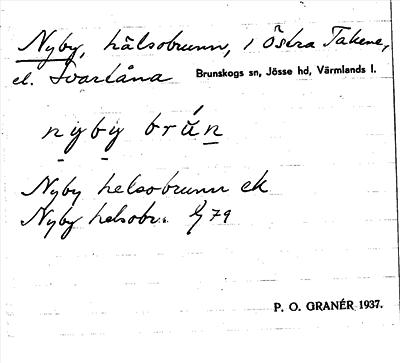 Nyby, hälsobrunn, i Östra Takene,
el. Svartåna Brunskogs sn, Jösse hd, Värmlands l.
nyby brún
Nyby helsobrunn ek
Nyby helsobr. 79
P. O. GRANÉR 1937.